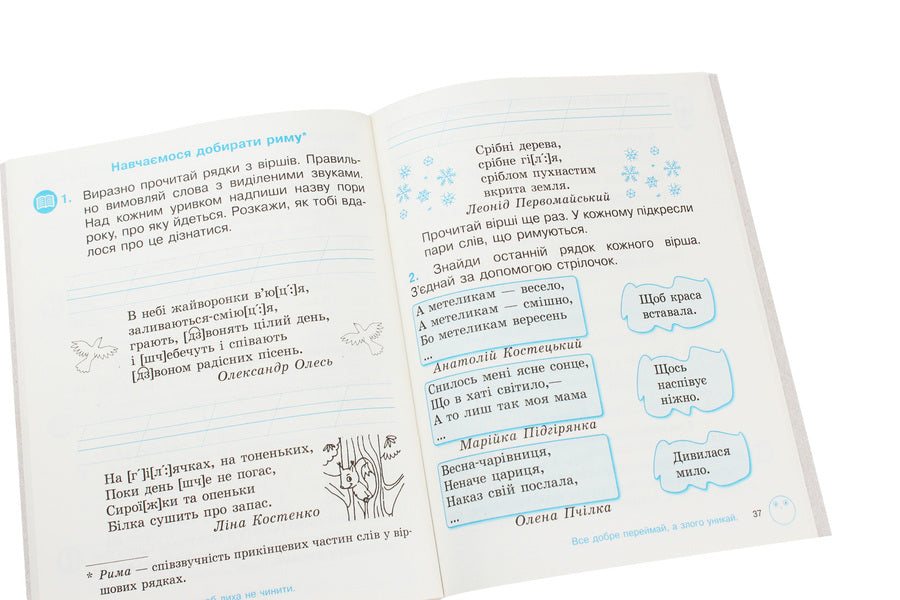 Навчаємося добирати риму*
1. Виразно прочитай рядки з віршів. Правиль-
но вимовляй слова з виділеними звуками.
Над кожним уривком надпиши назву пори
року, про яку йдеться. Розкажи, як тобі вда-
лося про це дізнатися.
В небі жайворонки в’ю[ц′:]я,
заливаються-смію[ц′:]я,
грають, [дз]вонять цілий день,
і [шч]ебечуть і співають
[дз]воном радісних пісень.
Олександр Олесь
На [г′]і[л′:]ячках, на тоненьких,
Поки день [шч]е не погас,
Сирої[ж]ки та опеньки
Білка сушить про запас.
Ліна Костенко
* Рима — співзвучність прикінцевих частин слів у вір-
шових рядках.
лиха не чинити.
Срібні дерева,
срібне гі[л′:]я,
сріблом пухнастим
вкрита земля.
Леонід Первомайський
Прочитай вірші ще раз. У кожному підкресли
пари слів, що римуються.
2. Знайди останній рядок кожного вірша.
З’єднай за допомогою стрілочок.
А метеликам — весело,
А метеликам — смішно,
Бо метеликам вересень
...
Анатолій Костецький
Щоб краса
вставала.
Снилось мені ясне сонце,
Що в хаті світило,—
А то лиш так моя мама
...
Марійка Підгірянка
Щось
наспівує
ніжно.
Весна-чарівниця,
Неначе цариця,
Наказ свій послала,
...
Олена Пчілка
Дивилася
мило.
Все добре переймай, а злого уникай.
37